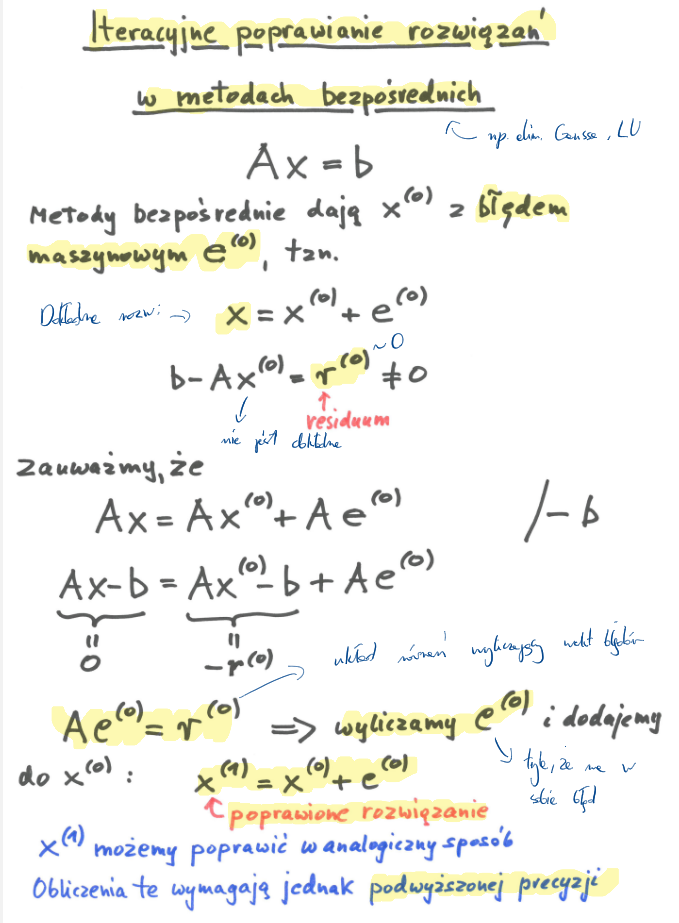 Iteracyjne poprawianie rozwiązań
w metodach bezpośrednich
np. elim. Gaussa, LU
Ax = b
Metody bezpośrednie dają x⁽⁰⁾ z błędem
maszynowym e⁽⁰⁾, tzn.
Dokładne rozw: → x = x⁽⁰⁾ + e⁽⁰⁾
~0
b - Ax⁽⁰⁾ = r⁽⁰⁾ ≠ 0
residuum
nie jest dokładne
Zauważmy, że
Ax = Ax⁽⁰⁾ + Ae⁽⁰⁾ /- b
Ax - b = Ax⁽⁰⁾ - b + Ae⁽⁰⁾
= =
0 -r⁽⁰⁾
układ równań wyliczający wekt błędów
Ae⁽⁰⁾ = r⁽⁰⁾ => wyliczamy e⁽⁰⁾ i dodajemy
do x⁽⁰⁾: x⁽¹⁾ = x⁽⁰⁾ + e⁽⁰⁾
tyle, że ma w
sobie błąd
poprawione rozwiązanie
x⁽¹⁾ możemy poprawić w analogiczny sposób
Obliczenia te wymagają jednak podwyższonej precyzji